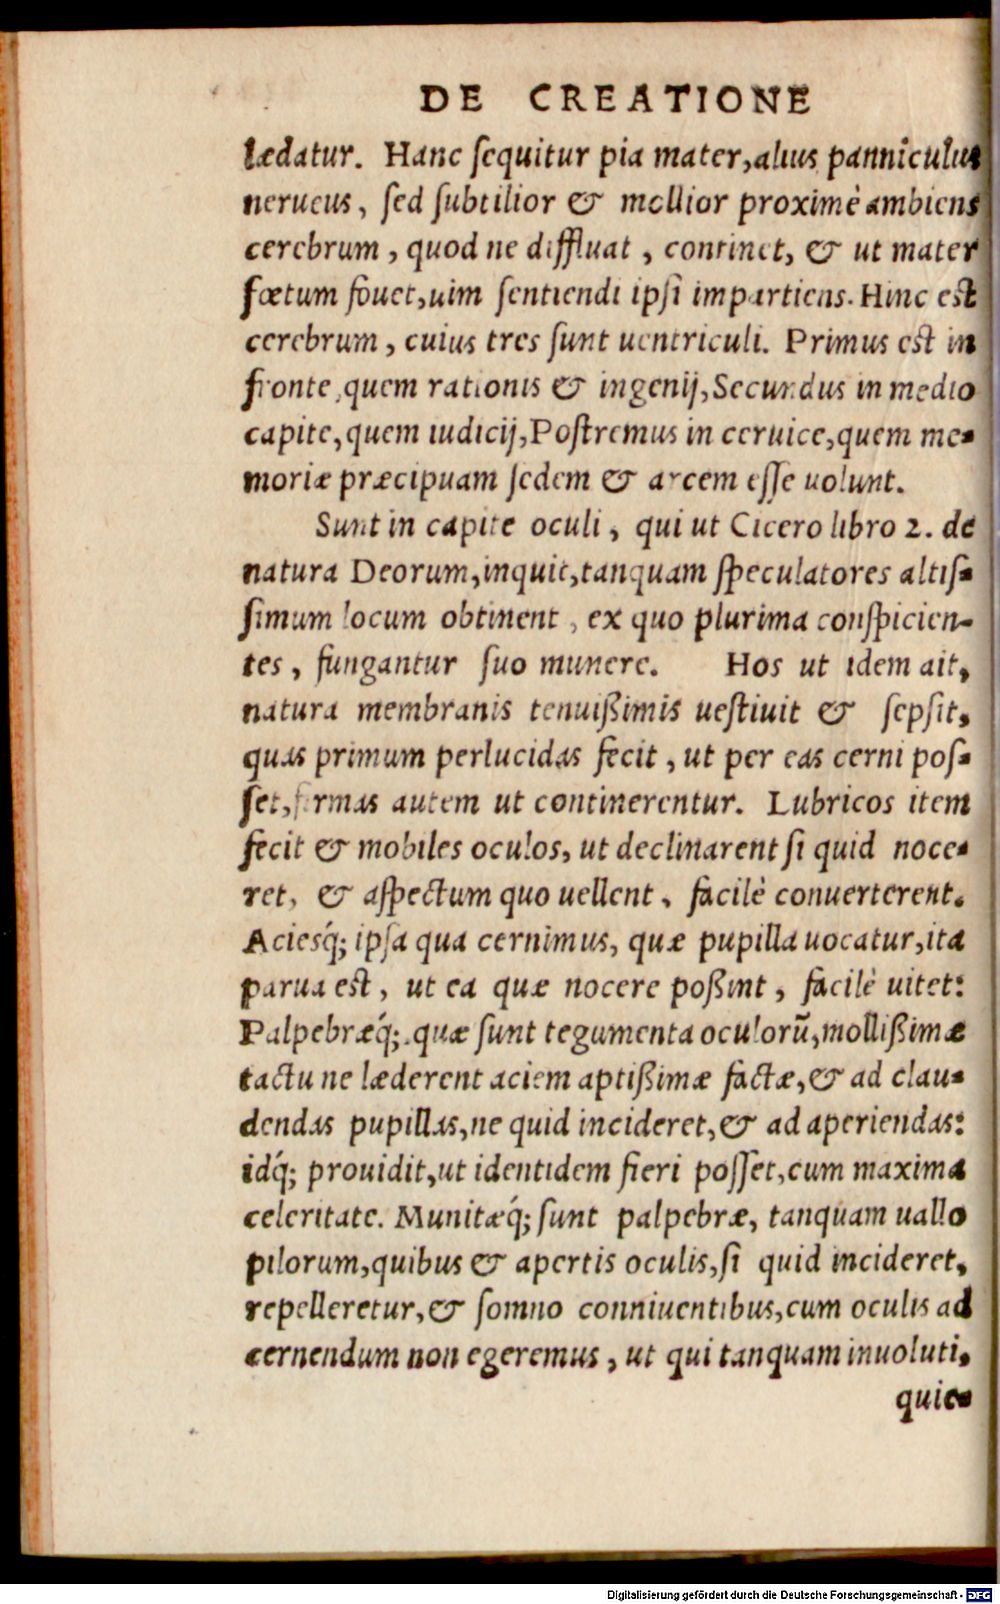 DE CREATIONE
lædatur. Hanc ſequitur pia mater, alius panniculus
nerueus, ſed ſubtilior & mollior proximè ambiens
cerebrum, quod ne diffluat, continet, & ut mater
fœtum fouet, uim ſentiendi ipſi impartiens. Hinc est
cerebrum, cuius tres ſunt uentriculi. Primus est in
fronte, quem rationis & ingenij, Secundus in medio
capite, quem iudicij, Poſtremus in ceruice, quem me-
moriæ præcipuam ſedem & arcem eſſe uolunt.
Sunt in capite oculi, qui ut Cicero libro 2. de
natura Deorum, inquit, tanquam ſpeculatores altiſ-
ſimum locum obtinent, ex quo plurima conſpicien-
tes, fungantur ſuo munere. Hos ut idem ait,
natura membranis tenuißimis ueſtiuit & ſepſit,
quas primum perlucidas fecit, ut per eas cerni poſ-
ſet, firmas autem ut continerentur. Lubricos item
fecit & mobiles oculos, ut declinarent ſi quid noce-
ret, & aſpectum quo uellent, facilè conuerterent.
Aciesq́; ipſa qua cernimus, quæ pupilla uocatur, ita
parua est, ut ea quæ nocere poßint, facilè uitet:
Palpebræq́; quæ ſunt tegumenta oculorũ, mollißimæ
tactu ne læderent aciem aptißimæ factæ, & ad clau-
dendas pupillas, ne quid incideret, & ad aperiendas:
idq́; prouidit, ut identidem fieri poſſet, cum maxima
celeritate. Munitæq́; ſunt palpebræ, tanquam uallo
pilorum, quibus & apertis oculis, ſi quid incideret,
repelleretur, & ſomno conniuentibus, cum oculis ad
cernendum non egeremus, ut qui tanquam inuoluti,
quie-
Digitalisierung gefördert durch die Deutsche Forschungsgemeinschaft - DFG